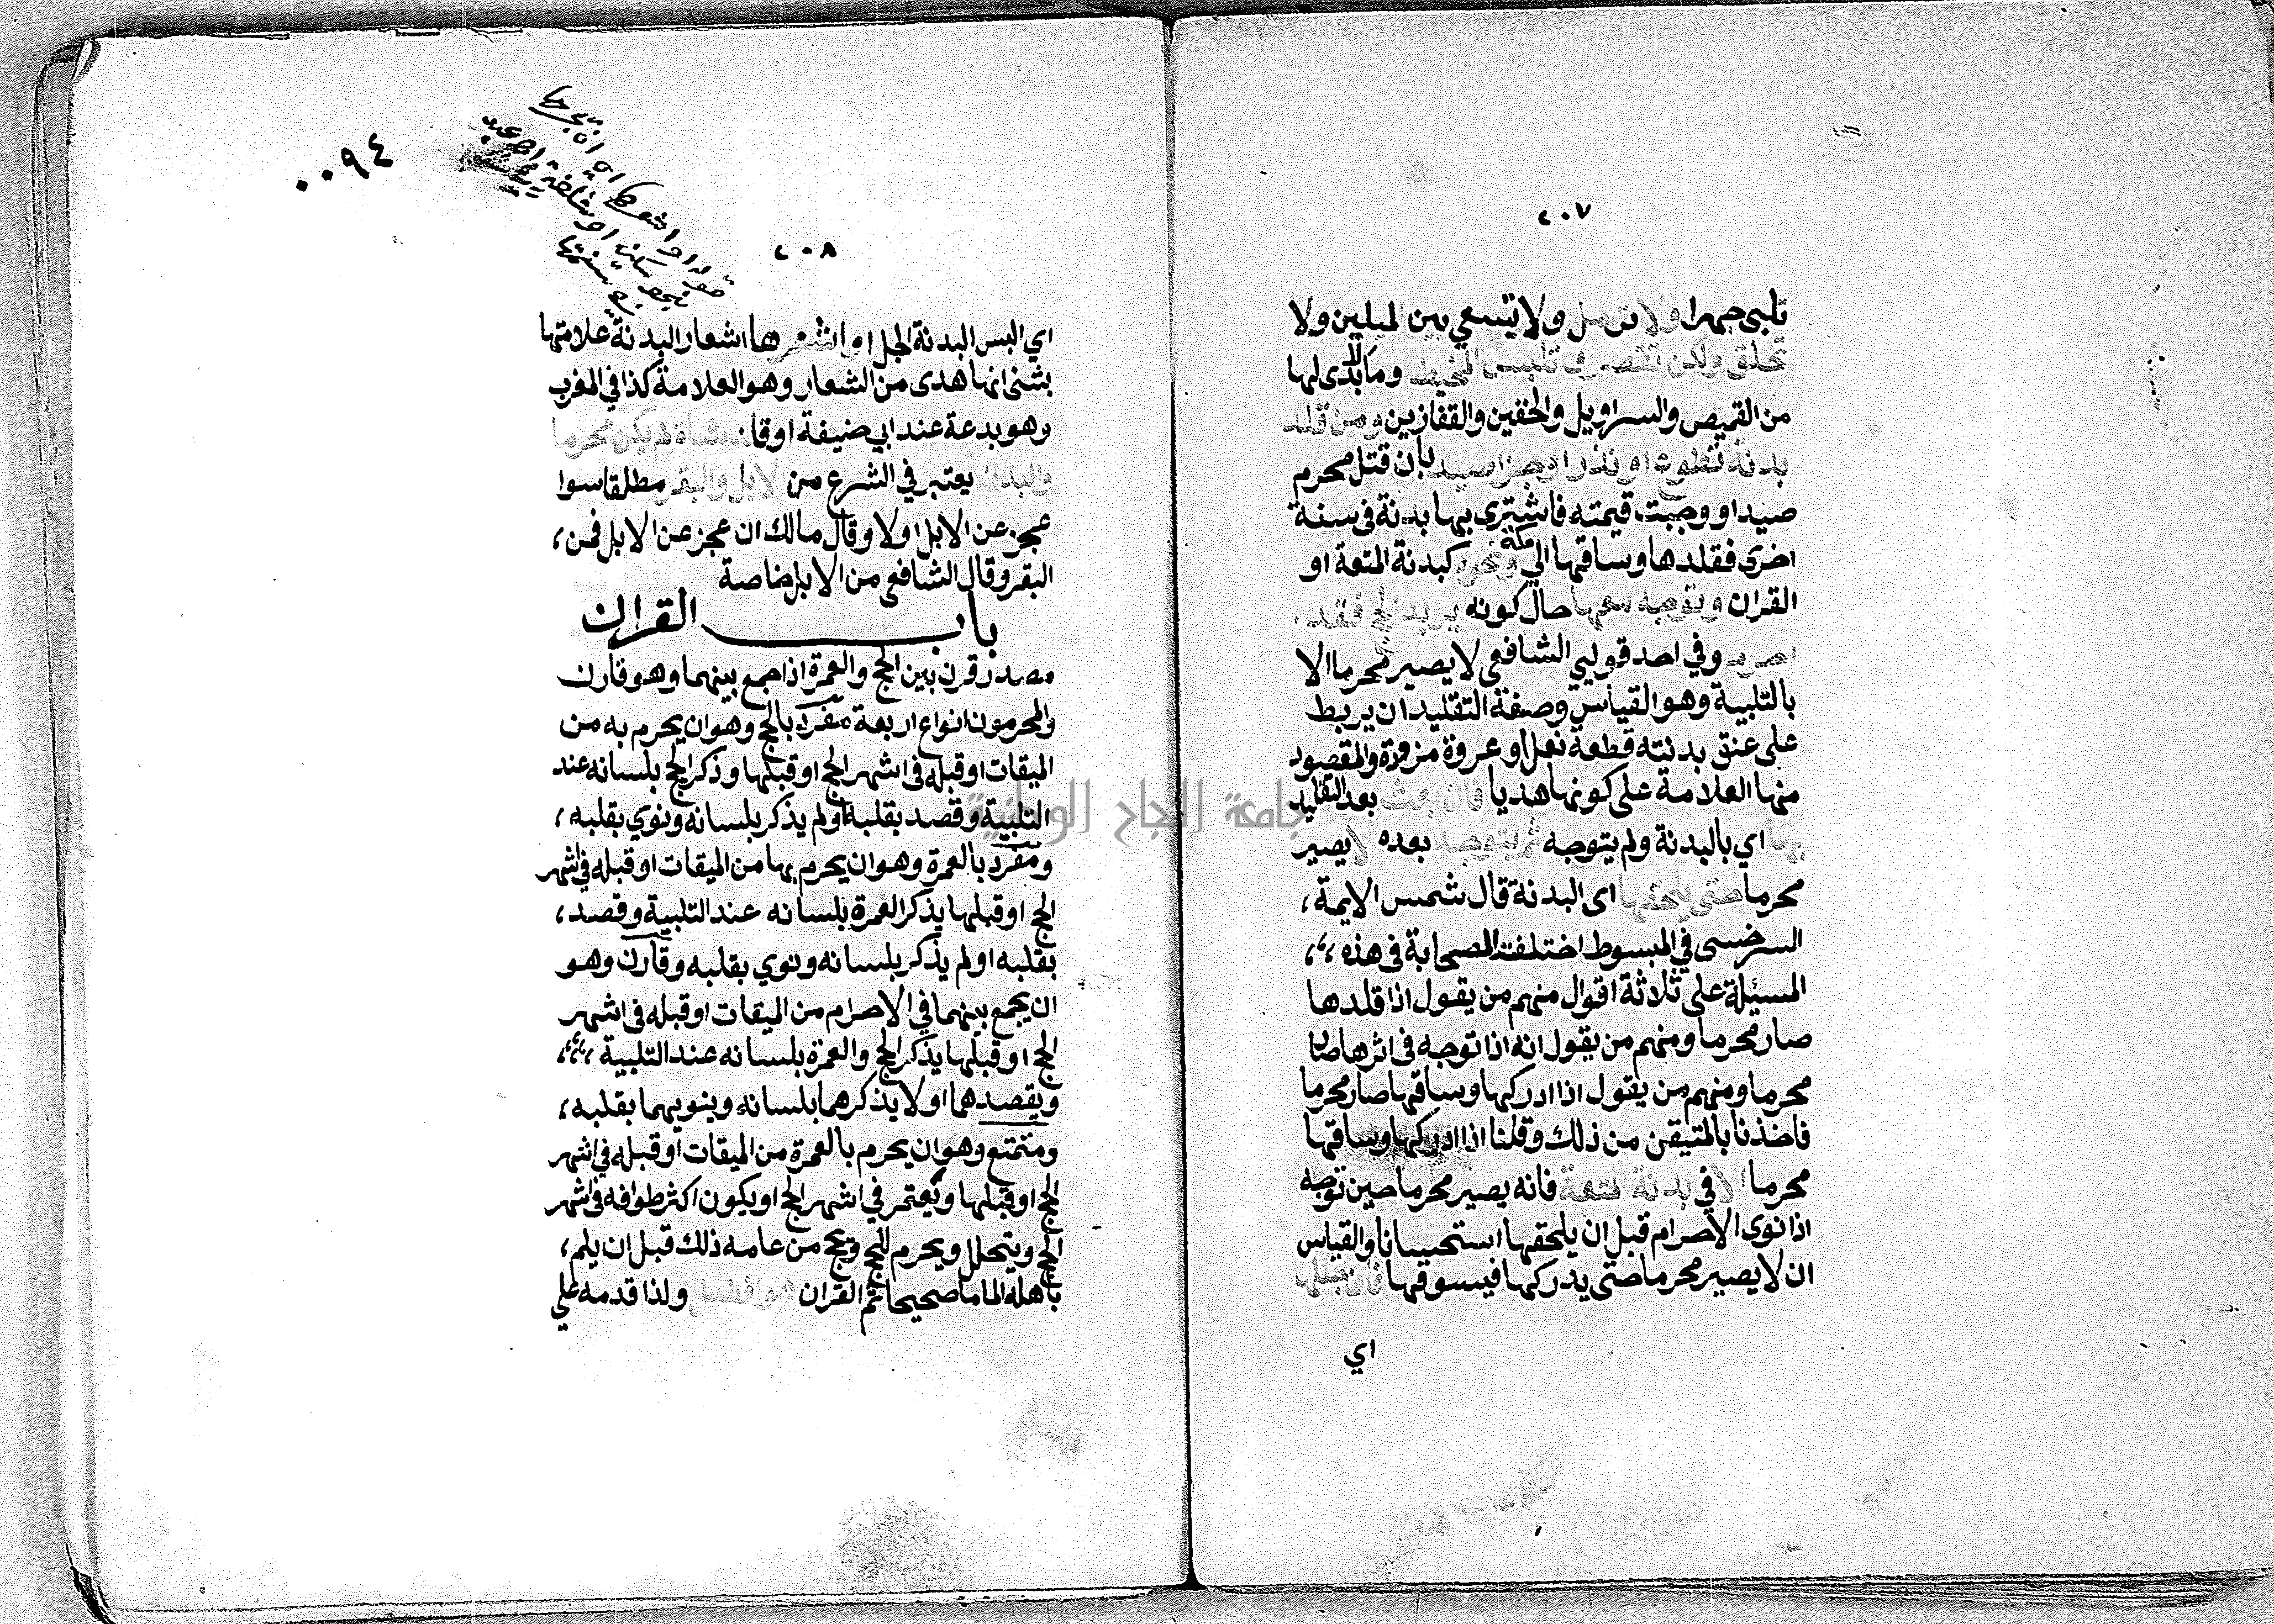 ٢٠٧
تلبي جهرا ولا ترمل ولا تسعي بين الميلين ولا
تحلق ولكن تقصر وتلبس المخيط وما بدى لها
من القميص والسراويل والخفين والقفازين ومن قلد
بدنة تطوع او نذر او جزا صيد بان قتل محرم
صيدا ووجبت قيمته فاشترى بها بدنة في سنة
اخرى فقلدها وساقها الي مكة ونحوه كبدنة المتعة او
القران وتوجه معها حال كونه يريد الحج فقد
احرم وفي احد قولي الشافعي لا يصير محرما الا
بالتلبية وهو القياس وصفة التقليد ان يربط
على عنق بدنته قطعة نعل او عروة مزودة والمقصود
منها العلامة على كونها هديا فان بعث بعد التقليد
بها اي بالبدنة ولم يتوجه ثم يتوجه بعده لا يصير
محرما حتى يلحقها اى البدنة قال شمس الايمة
السرخسى في المبسوط اختلفت الصحابة فى هذه
المسئلة على ثلاثة اقوال منهم من يقول اذا قلدها
صار محرما ومنهم من يقول انه اذا توجه فى اثرها صار
محرما ومنهم من يقول اذا ادركها وساقها صار محرما
فاخذنا بالمتيقن من ذلك وقلنا اذا ادركها وساقها
محرما الا في بدنة المتعة فانه يصير محرما حين توجه
اذا نوى الاحرام قبل ان يلحقها استحسانا والقياس
ان لا يصير محرما حتى يدركها فيسوقها فان جللها
اي
٠٠٩٤
قوله او اشعرها اى ان يجرحها
٢٠٨
اي البس البدنة الجل او اشعرها اشعار البدنة علامتها
بشئ انها هدى من الشعار وهو العلامة كذا في المغرب
وهو بدعة عند ابي حنيفة او قلد شاة لم يكن محرما
والبدن يعتبر في الشرع من الابل والبقر مطلقا سوا
عجز عن الابل او لا وقال مالك ان عجز عن الابل فمن
البقر وقال الشافعي من الابل خاصة
باب القران
مصدر قرن بين الحج والعمرة اذا جمع بينهما وهو قارن
والمحرمون انواع اربعة مفرد بالحج وهو ان يحرم به من
الميقات او قبله فى اشهر الحج او قبلها وذكر الحج بلسانه عند
التلبية وقصد بقلبه او لم يذكر بلسانه ونوي بقلبه
ومفرد بالعمرة وهو ان يحرم بها من الميقات او قبله في اشهر
الحج او قبلها يذكر العمرة بلسانه عند التلبية وقصد
بقلبه او لم يذكر بلسانه ونوي بقلبه وقارن وهو
ان يجمع بينهما في الاحرام من الميقات او قبله فى اشهر
الحج او قبلها يذكر الحج والعمرة بلسانه عند التلبية
ويقصدهما او لا يذكرهما بلسانه وينويهما بقلبه
ومتمتع وهو ان يحرم بالعمرة من الميقات او قبله في اشهر
الحج او قبلها ويعتمر في اشهر الحج او يكون اكثر طوافه فى اشهر
الحج ويتحلل ويحرم للحج ويحج من عامه ذلك قبل ان يلم
باهله الماما صحيحا ثم القران هو افضل ولذا قدمه علي
جامعة النجاح الوطنية